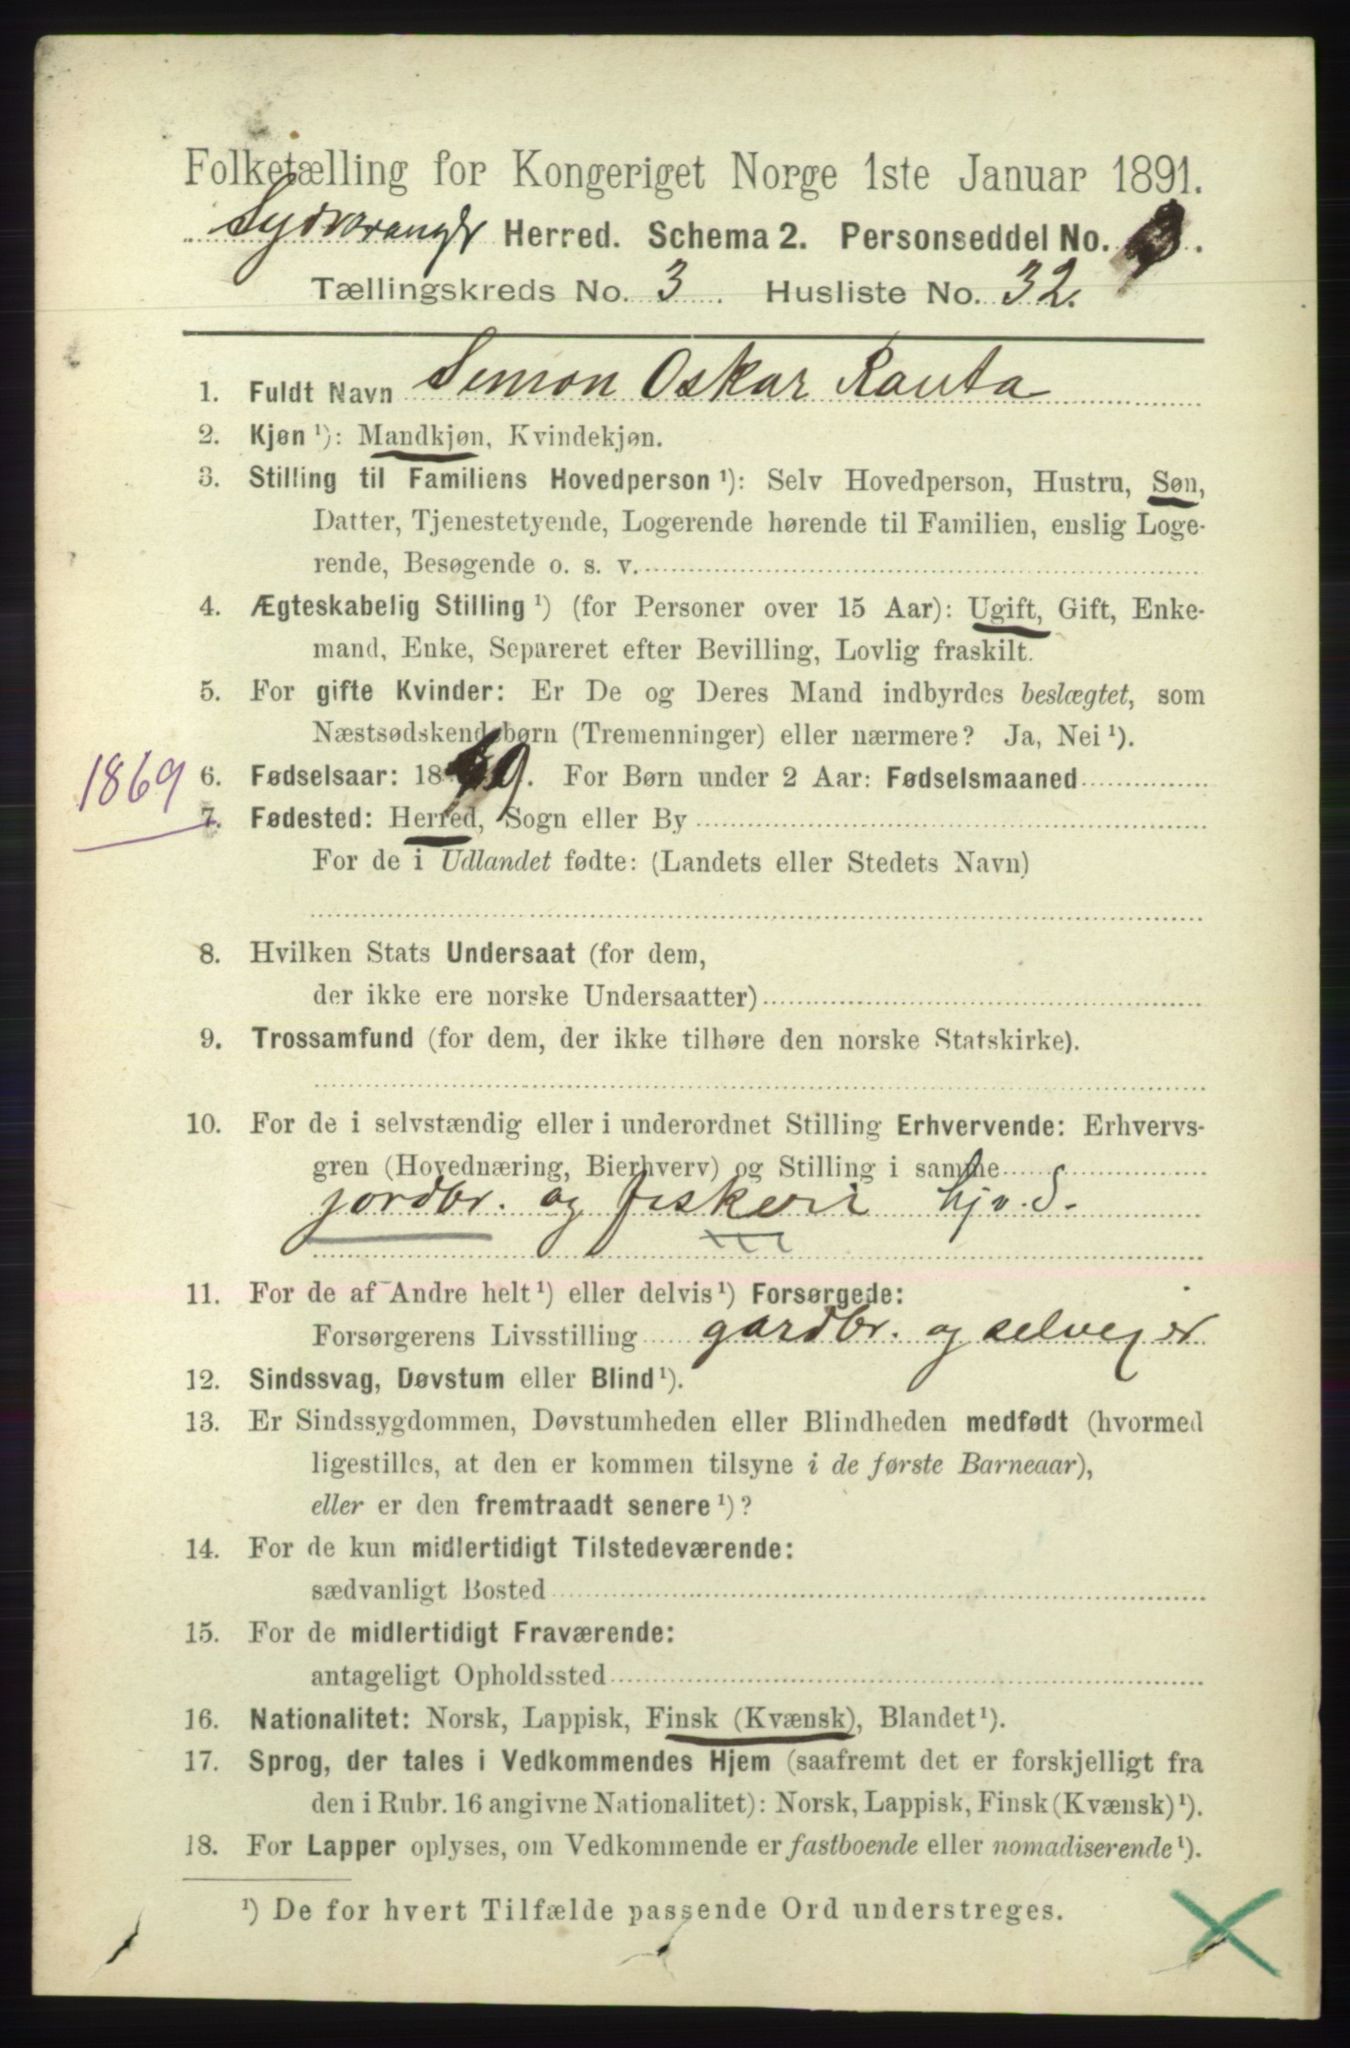 Folketælling for Kongeriget Norge 1ste Januar 1891.
Sydvaranger Herred. Schema 2. Personseddel No. 3.
Tællingskreds No. 3. Husliste No. 32.
1. Fuldt Navn Simon Oskar Rauta
2. Kjøn ¹): Mandkjøn, Kvindekjøn.
3. Stilling til Familiens Hovedperson ¹): Selv Hovedperson, Hustru, Søn,
Datter, Tjenestetyende, Logerende hørende til Familien, enslig Loge-
rende, Besøgende o. s. v.
4. Ægteskabelig Stilling ¹) (for Personer over 15 Aar): Ugift, Gift, Enke-
mand, Enke, Separeret efter Bevilling, Lovlig fraskilt.
5. For gifte Kvinder: Er De og Deres Mand indbyrdes beslægtet, som
Næstsødskendebørn (Tremenninger) eller nærmere? Ja, Nei ¹).
1869
6. Fødselsaar: 1869. For Børn under 2 Aar: Fødselsmaaned
7. Fødested: Herred, Sogn eller By
For de i Udlandet fødte: (Landets eller Stedets Navn)
8. Hvilken Stats Undersaat (for dem,
der ikke ere norske Undersaatter)
9. Trossamfund (for dem, der ikke tilhøre den norske Statskirke).
10. For de i selvstændig eller i underordnet Stilling Erhvervende: Erhvervs-
gren (Hovednæring, Bierhverv) og Stilling i samme
jordbr. og fiskeri hj v. S.
11. For de af Andre helt ¹) eller delvis ¹) Forsørgede:
Forsørgerens Livsstilling gardbr. og selvejer
12. Sindssvag, Døvstum eller Blind ¹).
13. Er Sindssygdommen, Døvstumheden eller Blindheden medfødt (hvormed
ligestilles, at den er kommen tilsyne i de første Barneaar),
eller er den fremtraadt senere ¹)?
14. For de kun midlertidigt Tilstedeværende:
sædvanligt Bosted
15. For de midlertidigt Fraværende:
antageligt Opholdssted
16. Nationalitet: Norsk, Lappisk, Finsk (Kvænsk), Blandet ¹).
17. Sprog, der tales i Vedkommendes Hjem (saafremt det er forskjelligt fra
den i Rubr. 16 angivne Nationalitet): Norsk, Lappisk, Finsk (Kvænsk) ¹).
18. For Lapper oplyses, om Vedkommende er fastboende eller nomadiserende ¹).
¹) De for hvert Tilfælde passende Ord understreges.